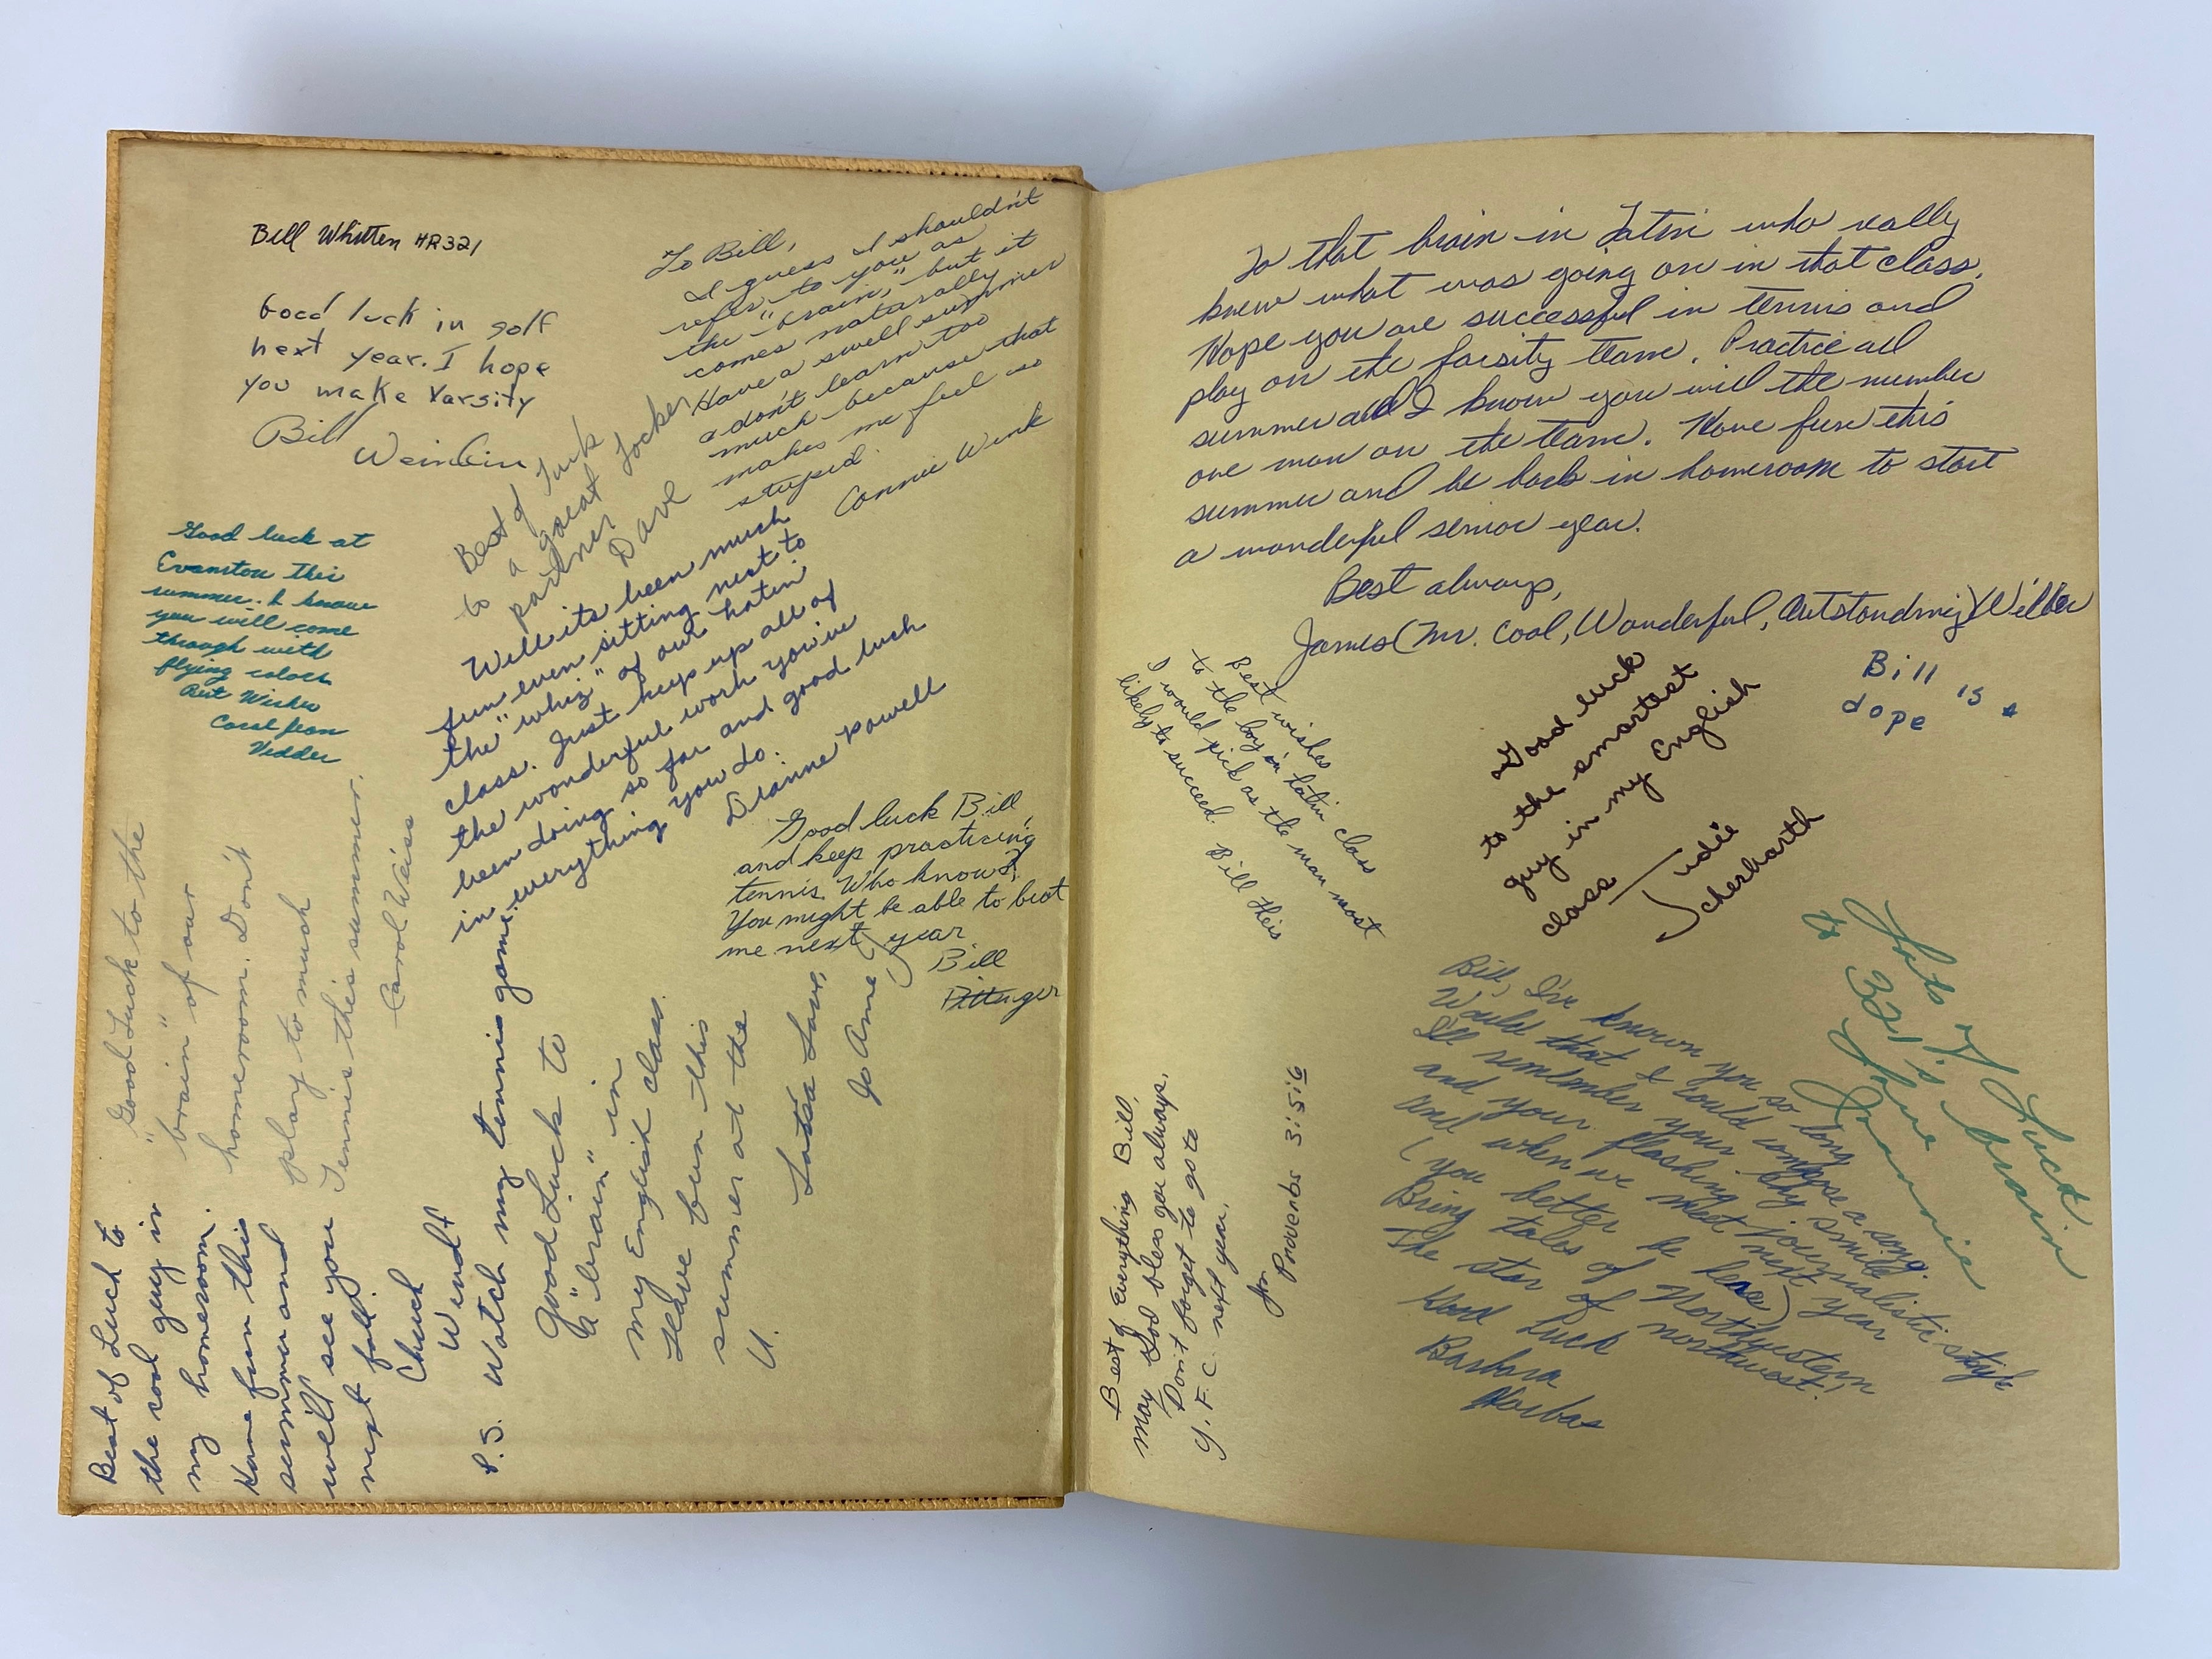 Bill Whitten HR321
Good luck in golf
next year. I hope
you make Varsity
Bill
To Bill,
I guess I shouldn't
refer to you as
the "brain," but it
comes naturally
Have a swell summer
& don't learn too
much because that
makes me feel so
stupid.
Connie Wenk
Best of Luck
to a great Locker
partner
Dave
Good luck at
Evanston this
summer. I know
you will come
through with
flying colors
Best Wishes
Carol Jean
Vedder
Well its been much
fun even sitting next to
the "whiz" of our Latin
class. Just keep up all of
the wonderful work you've
been doing so far and good luck
in everything you do.
Dianne Powell
Good luck Bill,
and keep practicing
tennis. Who knows?
You might be able to beat
me next year
Bill
Pittuger
"Good Luck to the
brain" of our
homeroom. Don't
play to much
Tennis this summer.
Carol Weiss
Best of Luck to
the cool guy in
my homeroom.
Have fun this
summer and
will see you
next fall.
Chuck
Wendt
P.S. Watch my tennis game.
Good Luck to
a "brain" in
my English class.
Have fun this
summer at the
U.
Lotsa Love,
Jo Anne
To that brain in Latin who really
knew what was going on in that class.
Hope you are successful in tennis and
play on the farsity team. Practice all
summer and I know you will the number
one man on the team. Have fun this
summer and be back in homeroom to start
a wonderful senior year.
Best always,
James (Mr. Cool, Wonderful, Outstanding) Willer
Bill is
dope
Best wishes
to the boy in Latin class
I would pick as the man most
likely to succeed. Bill Heis
Good luck
to the smartest
guy in my English
class
Judie
Scherbarth
Lots of Luck
to 321's brain
Love
Joannie
Bill, I've known you so long
Would that I could compose a song.
I'll remember your shy smile
and your flashing journalistic style
And when we meet next year
(you better be here)
Bring tales of Northwestern
The star of northwest!
Good Luck
Barbara
Horbas
Best of Everything Bill,
May God bless you always.
Don't forget to go to
Y. F. C. next year.
Jon
Proverbs 3:5:6